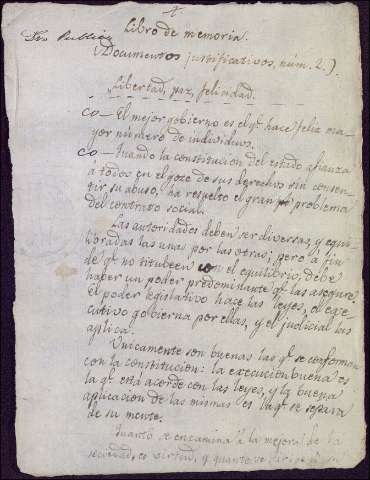 Libro de memoria.
(Documentos justificativos, núm. 2.)
Libertad, paz, felicidad.
CO— El mejor gobierno es el qᵉ hace feliz ma-
yor número de individuos.
CO— Cuando la constitucion del estado afianza
á todos en el goze de sus derechos sin consen-
tir su abuso, ha resuelto el gran problema
del contrato social.
Las autoridades deben ser diversas, y equi-
libradas las unas por las otras; pero á fin
de qᵉ no titubeen con el equilibrio, debe
haber un poder predominante qᵉ las asegure.
El poder legislativo hace las leyes, el eje-
cutivo gobierna por ellas, y el judicial las
aplica.
Unicamente son buenas las qᵉ se conforman
con la constitucion: la execucion buena es
la qᵉ está acorde con las leyes, y la buena
aplicacion de las mismas es la qᵉ se separa
de su mente.
Cuanto se encamina á la mejora de la
sociedad, es virtud, y quanto se dirige